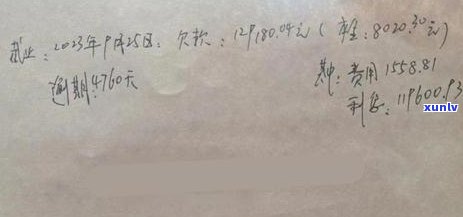 截止:2023年9月25日:欠款:129180.04元(本金:8020.30元)
逾期4760天
其中:费用1558.81
利息:119600.93
xunlv